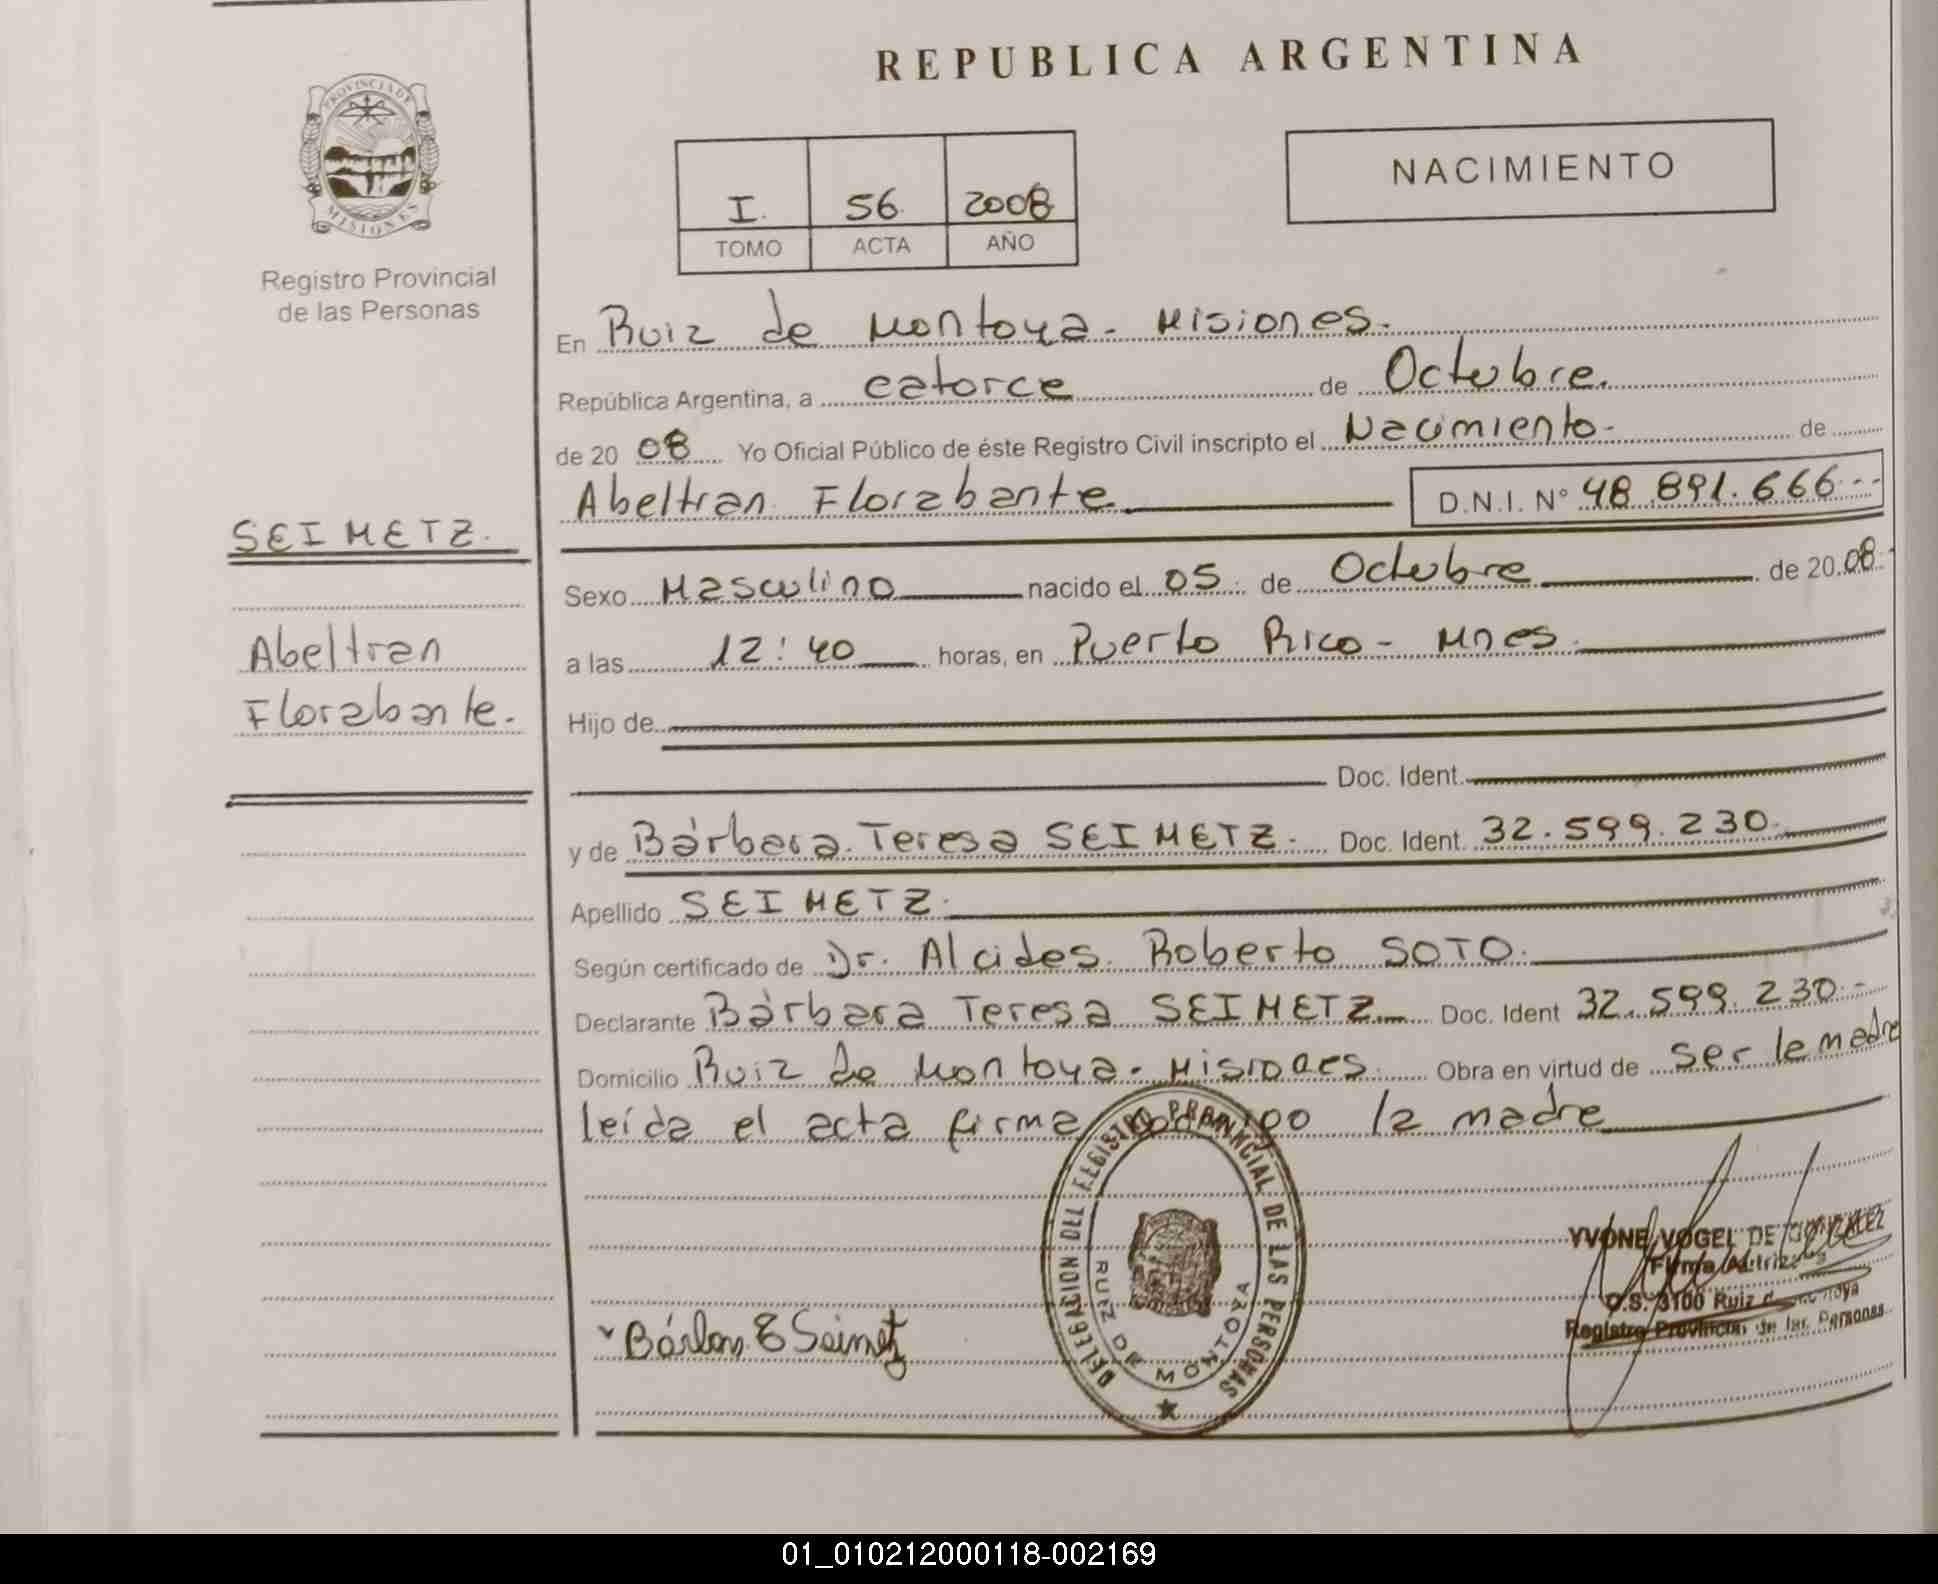 REPUBLICA ARGENTINA
PROVINCIA DE
MISIONES
Registro Provincial
de las Personas
I. 56 2008
TOMO ACTA AÑO
NACIMIENTO
En Ruiz de Montoya - Misiones.
República Argentina, a catorce de Octubre.
de 20 08 Yo Oficial Público de éste Registro Civil inscripto el Nacimiento - de
Abeltran Florabante D.N.I. N° 48.891.666
SEIMETZ.
Abeltran
Florabante.
Sexo Masculino nacido el 05 de Octubre de 20 08
a las 12:40 horas, en Puerto Rico - Mnes.
Hijo de
Doc. Ident.
y de Bárbara Teresa SEIMETZ. Doc. Ident. 32.599.230
Apellido SEIMETZ.
Según certificado de Dr. Alcides Roberto SOTO.
Declarante Bárbara Teresa SEIMETZ Doc. Ident 32.599.230
Domicilio Ruiz de Montoya - Misiones. Obra en virtud de ser la madre
leída el acta firma la madre
DELEGACION DEL REGISTRO PROVINCIAL DE LAS PERSONAS
RUIZ DE MONTOYA
YVONE VOGEL DE GONZALEZ
Firma
O.S. 3100 Ruiz
Registro Provincial de las Personas
01_010212000118-002169